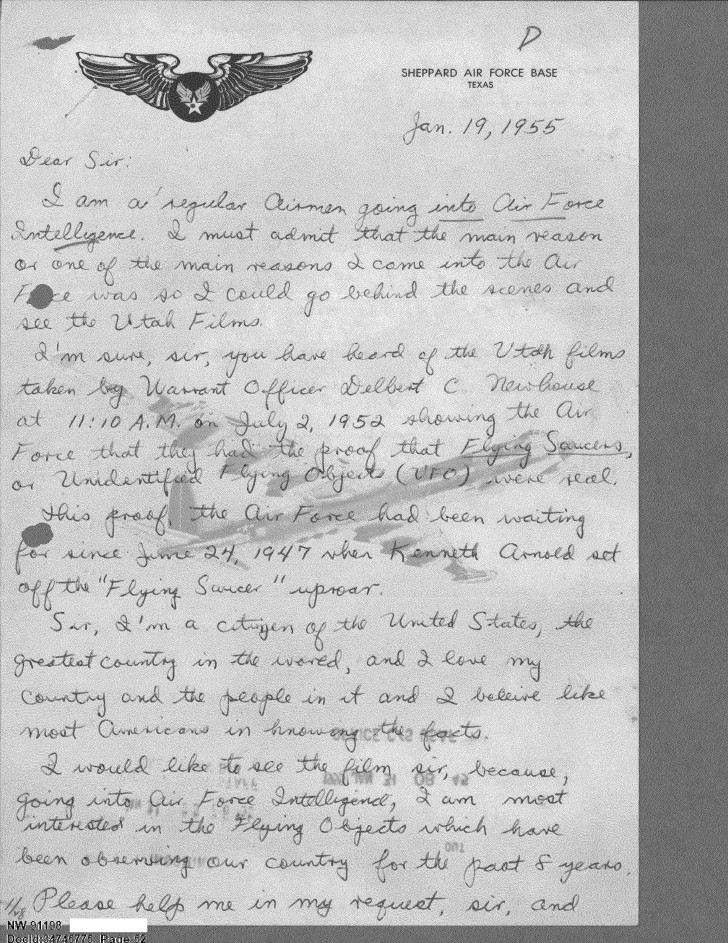 D
SHEPPARD AIR FORCE BASE
TEXAS
Jan. 19, 1955
Dear Sir:
I am a regular Airman going into Air Force
Intelligence. I must admit that the main reason
or one of the main reasons I came into the Air
Force was so I could go behind the scenes and
see the Utah Films.
I'm sure, sir, you have heard of the Utah films
taken by Warrant Officer Delbert C. Newhouse
at 11:10 A.M. on July 2, 1952 showing the Air
Force that they had the proof that Flying Saucers,
or Unidentified Flying Objects (UFO) were real.
This proof, the Air Force had been waiting
for since June 24, 1947 when Kenneth Arnold set
off the "Flying Saucer" uproar.
Sir, I'm a citizen of the United States, the
greatest country in the wored, and I love my
country and the people in it and I beleive like
most Americans in knowing the facts.
I would like to see the film, sir, because,
going into Air Force Intelligence, I am most
interested in the Flying Objects which have
been observing our country for the past 8 years.
Please help me in my request, sir, and
NW 91198
DocId:34746775 Page 52